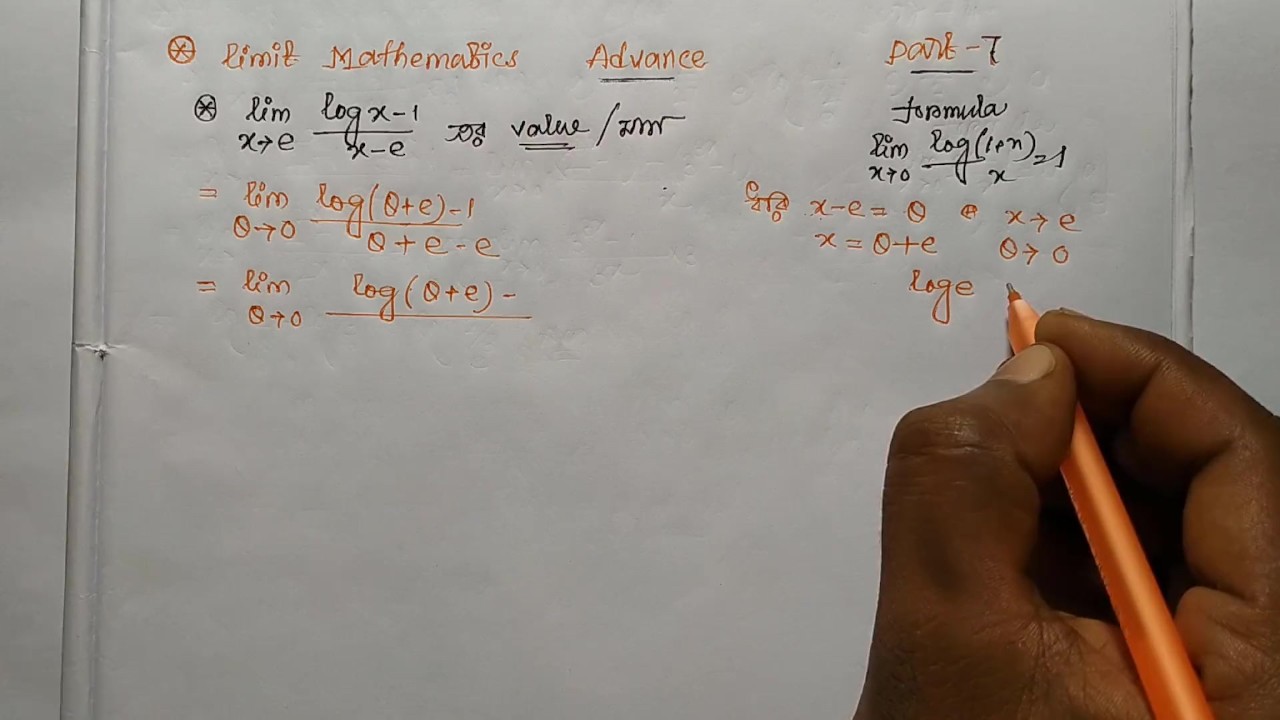 ⊛ Limit Mathematics Advance Part-7
⊛ lim x→e (log x - 1)/(x - e) এর value / মান
formula
lim x→0 log(1+x)/x = 1
= lim θ→0 (log(θ+e) - 1)/(θ + e - e)
ধরি x - e = θ x → e
x = θ + e θ → 0
= lim θ→0 log(θ+e) -
log e